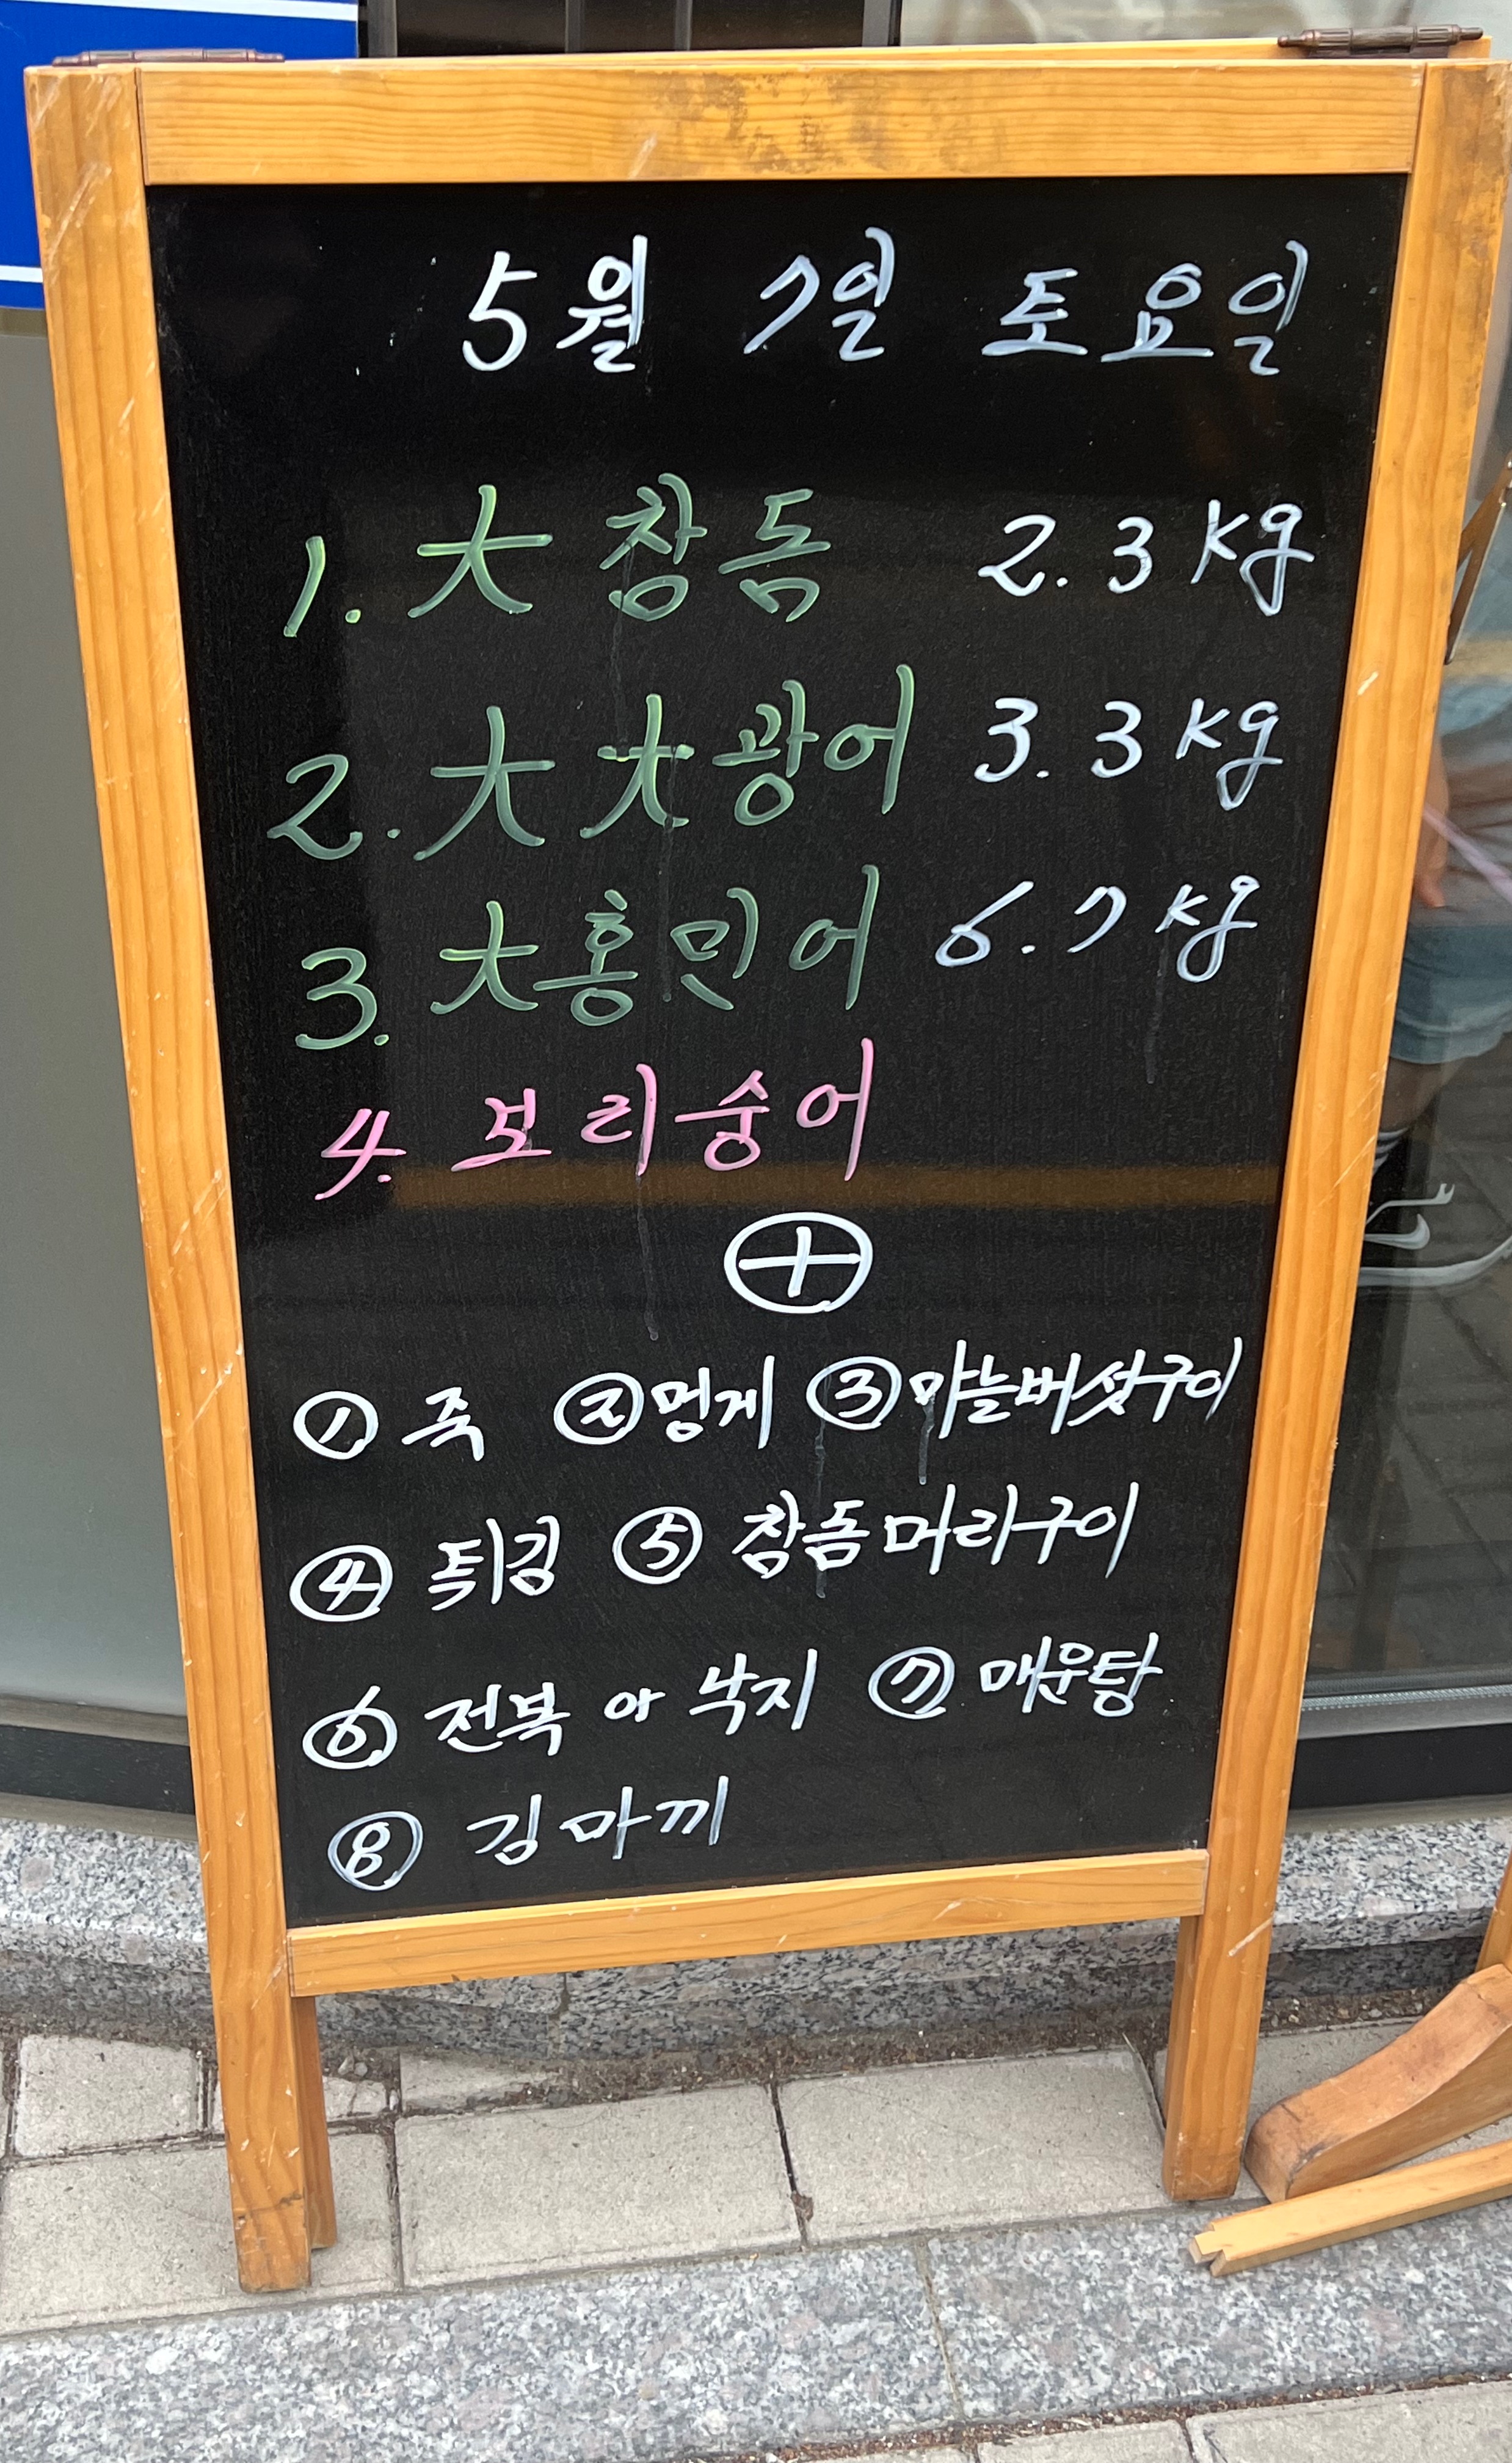 5월 7일 토요일
1. 大 참돔 2.3 kg
2. 大 大 광어 3.3 kg
3. 大 홍민어 6.7 kg
4. 보리숭어
⊕
① 죽 ② 멍게 ③ 마늘버섯구이
④ 튀김 ⑤ 참돔머리구이
⑥ 전복 or 낙지 ⑦ 매운탕
⑧ 김마끼